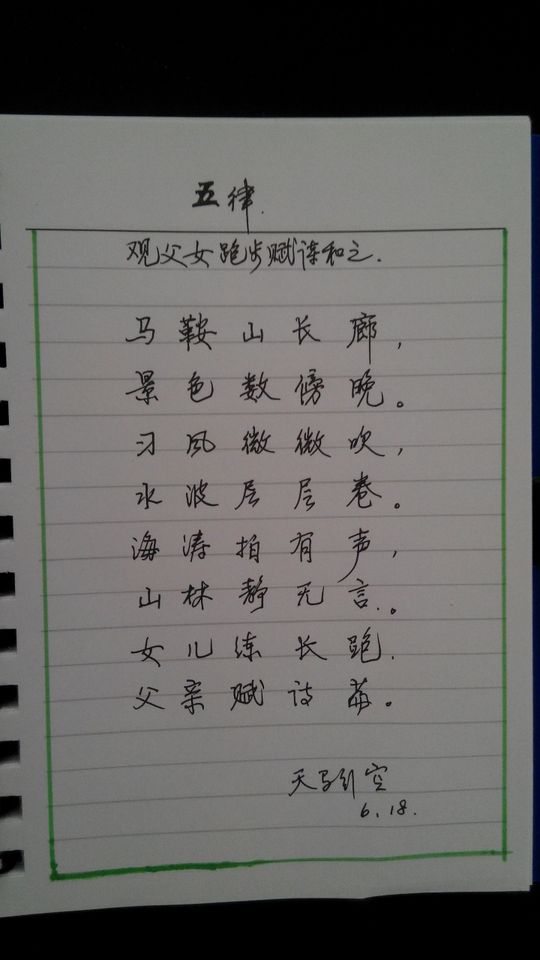 五律.
观父女跑步赋诗和之.
马鞍山长廊，
景色数傍晚。
习风微微吹，
水波层层卷。
海涛拍有声，
山林静无言。
女儿练长跑.
父亲赋诗篇。
天马行空
6.18.